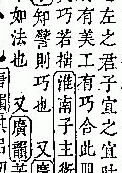 左之君子宜之宜
有美工有巧合此四
巧若拙淮南子主術
知譬則巧也 又
如法也 又廣韻